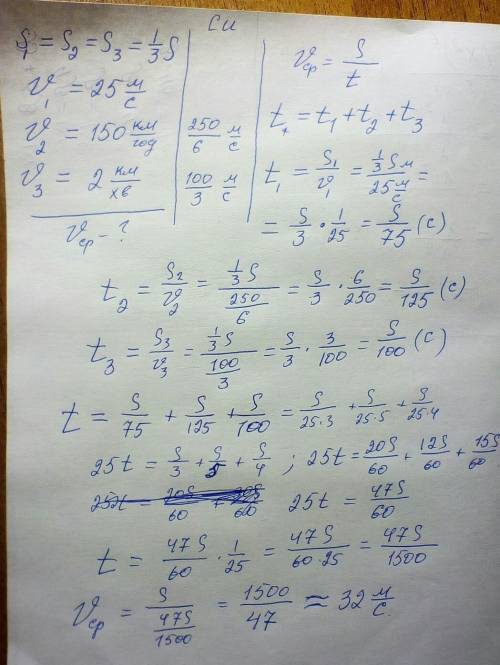 Си
S₁ = S₂ = S₃ = 1/3 S
v₁ = 25 м/с
v₂ = 150 км/год | 250/6 м/с
v₃ = 2 км/хв | 100/3 м/с
vср - ?
vср = S/t
t = t₁ + t₂ + t₃
t₁ = S₁/v₁ = (1/3 S м)/(25 м/с) =
= S/3 · 1/25 = S/75 (с)
t₂ = S₂/v₂ = (1/3 S)/(250/6) = S/3 · 6/250 = S/125 (с)
t₃ = S₃/v₃ = (1/3 S)/(100/3) = S/3 · 3/100 = S/100 (с)
t = S/75 + S/125 + S/100 = S/(25·3) + S/(25·5) + S/(25·4)
25t = S/3 + S/5 + S/4 ; 25t = 20S/60 + 12S/60 + 15S/60
25t = 47S/60
t = 47S/60 · 1/25 = 47S/(60·25) = 47S/1500
vср = S/(47S/1500) = 1500/47 ≈ 32 м/с.